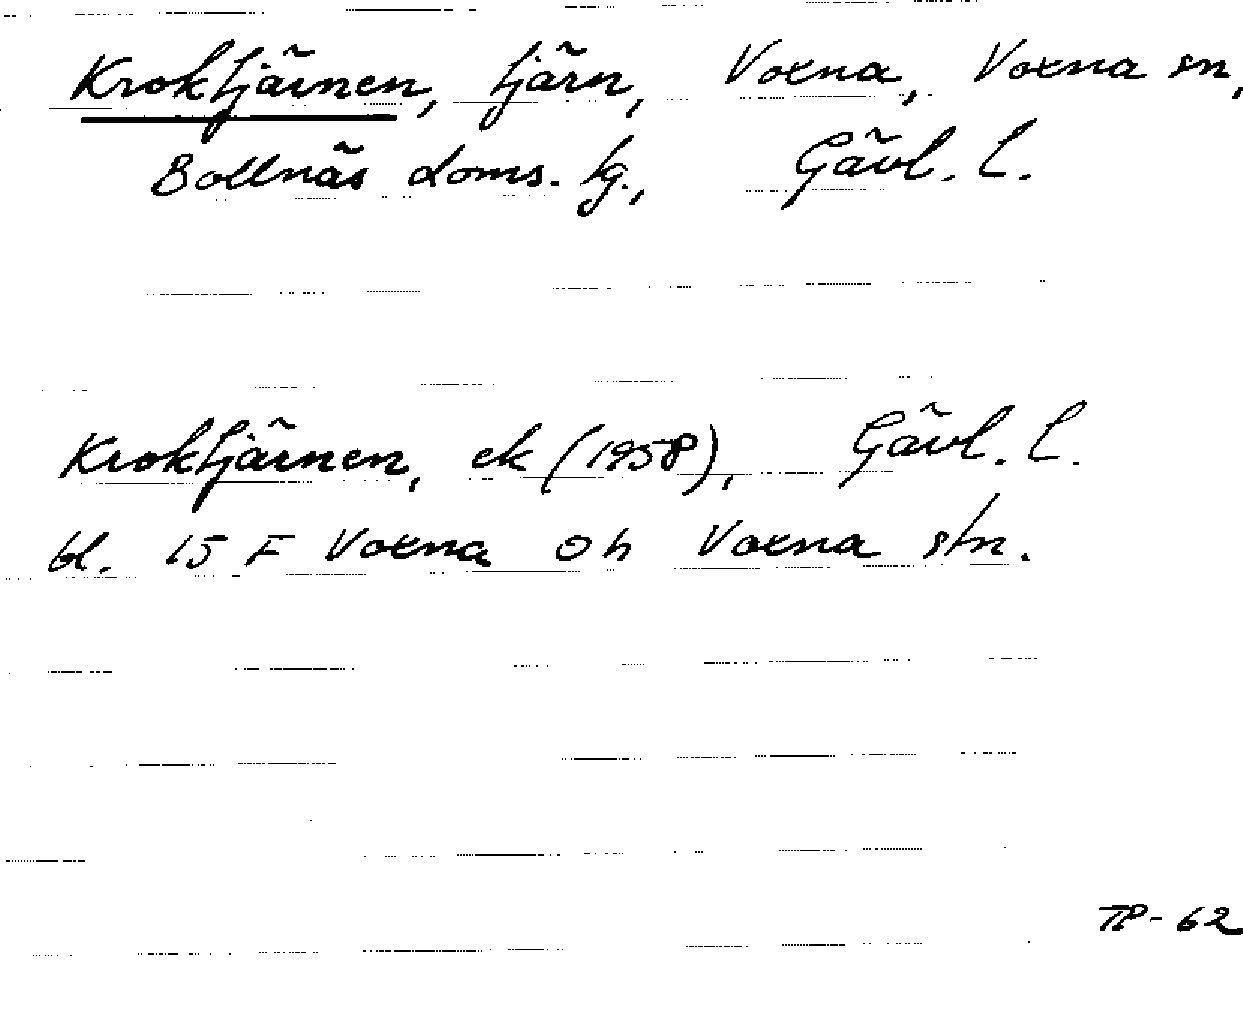 Kroktjärnen, tjärn, Voxna, Voxna sn,
Bollnäs doms. lg., Gävl. l.
Kroktjärnen, ek (1958), Gävl. l.
bl. 15 F Voxna Oh Voxna stn.
TP-62